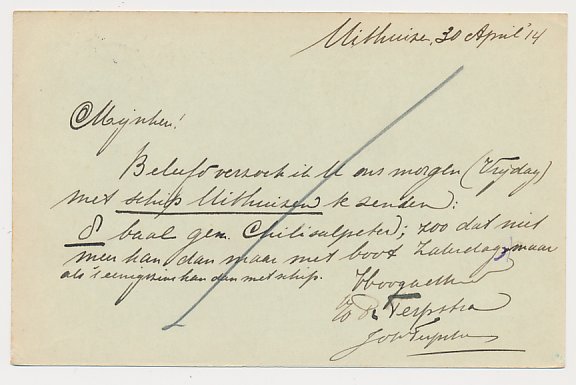 Uithuizen, 30 April '14
Mijnheer!
Beleefd verzoek ik U ons morgen (Vrijdag)
met schip Uithuizen te zenden:
8 baal gem. Chilisalpeter; zoo dat niet
meer kan dan maar met boot Zaterdag, maar
als 't eenigszins kan dan met schip.
Hoogachtend
R. Terpstra